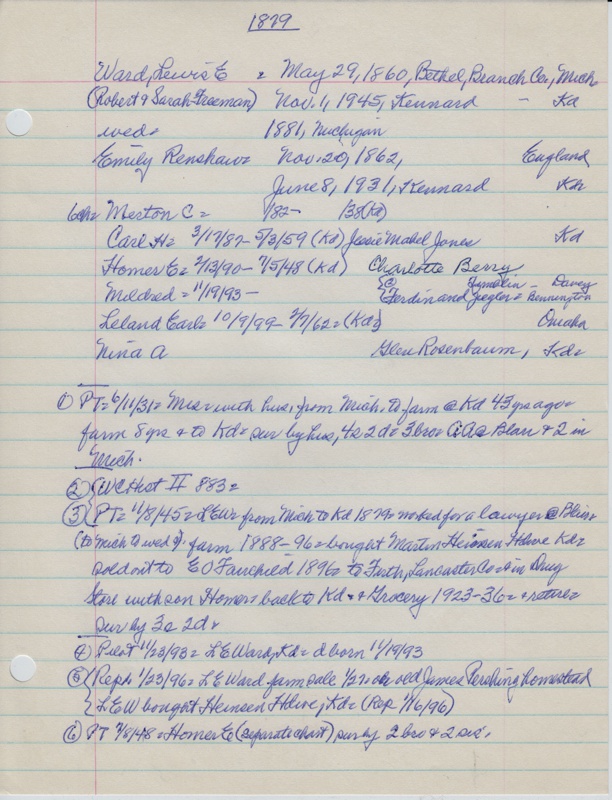 1879
Ward, Lewis E = May 29, 1860, Bethel, Branch Co., Mich
(Robert & Sarah Freeman) Nov. 1, 1945, Kennard - Kd
wed= 1881, Michigan
Emily Renshaw= Nov. 20, 1862, England
June 8, 1931, Kennard Kd
6ch= Merton C= 182- 138(Kd)
Carl H= 3/17/87- 5/3/59 (Kd) Jessie Mabel Jones Kd
Homer E= 2/13/90- 7/5/48 (Kd) Charlotte Berry
Mildred= 11/19/93- {① - Davey
{Ferdinand Ziegler= Bennington
Leland Earl= 10/9/99- 2/7/62= (Kd) Omaha
Nina A Glen Rosenbaum, Kd=
① PT= 6/11/31= Mrs= with hus, from Mich. to farm @ Kd 43 yrs ago=
farm 8 yrs & to Kd= sur by hus, 4s 2d= 3 bro= Blair & 2 in
Mich.
② {WC Hist II 883=
③ {PT= 11/8/45= LEW= from Mich to Kd 1879= worked for a lawyer @ Blair=
(to Mich to wed). farm 1888-96= bought Martin Heinsen Hdwe Kd=
sold out to E O Fairchild 1896= to Firth, Lancaster Co= in Drug
Store with son Homer= back to Kd & Grocery 1923-36= & retire=
sur by 3s 2d=
④ Pilot 11/23/93= L E Ward, Kd= d born 11/19/93
⑤ {Reph 1/23/96= L E Ward farm sale 1/27= on old James Pershing homestead
{L E W bought Heinsen Hdwe, Kd= (Rep 1/16/96)
⑥ PT 7/8/48= Homer E (separate chart) sur by 2 bro & 2 sis.